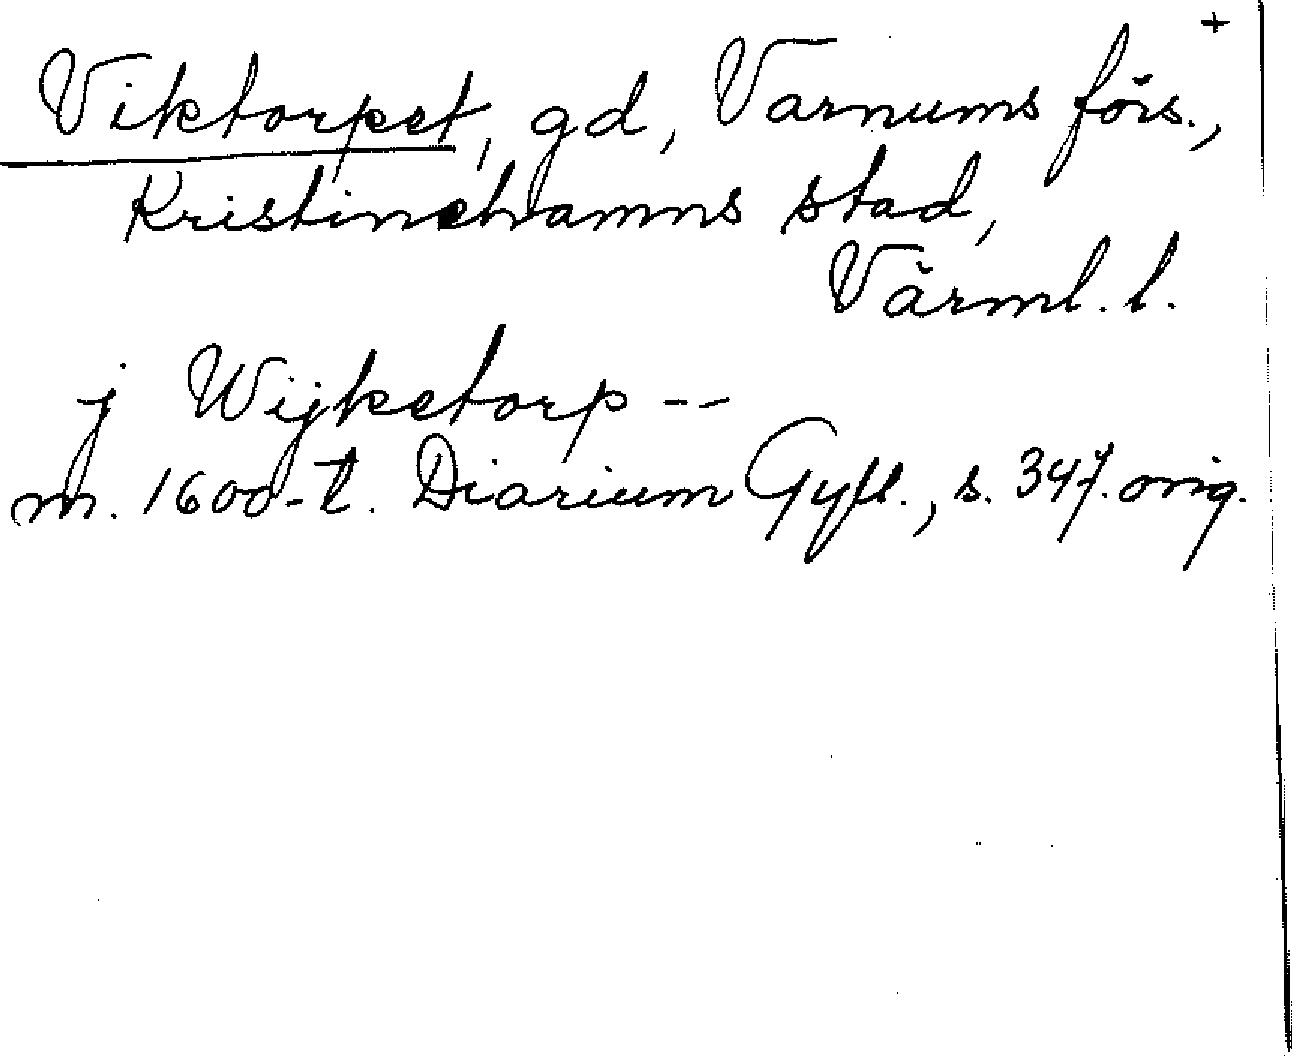 +
Viktorpet, gd, Varnums förs.,
Kristinehamns stad,
Värml. l.
j Wijketorp --
m. 1600-t. Diarium Gyll., s. 347. orig.